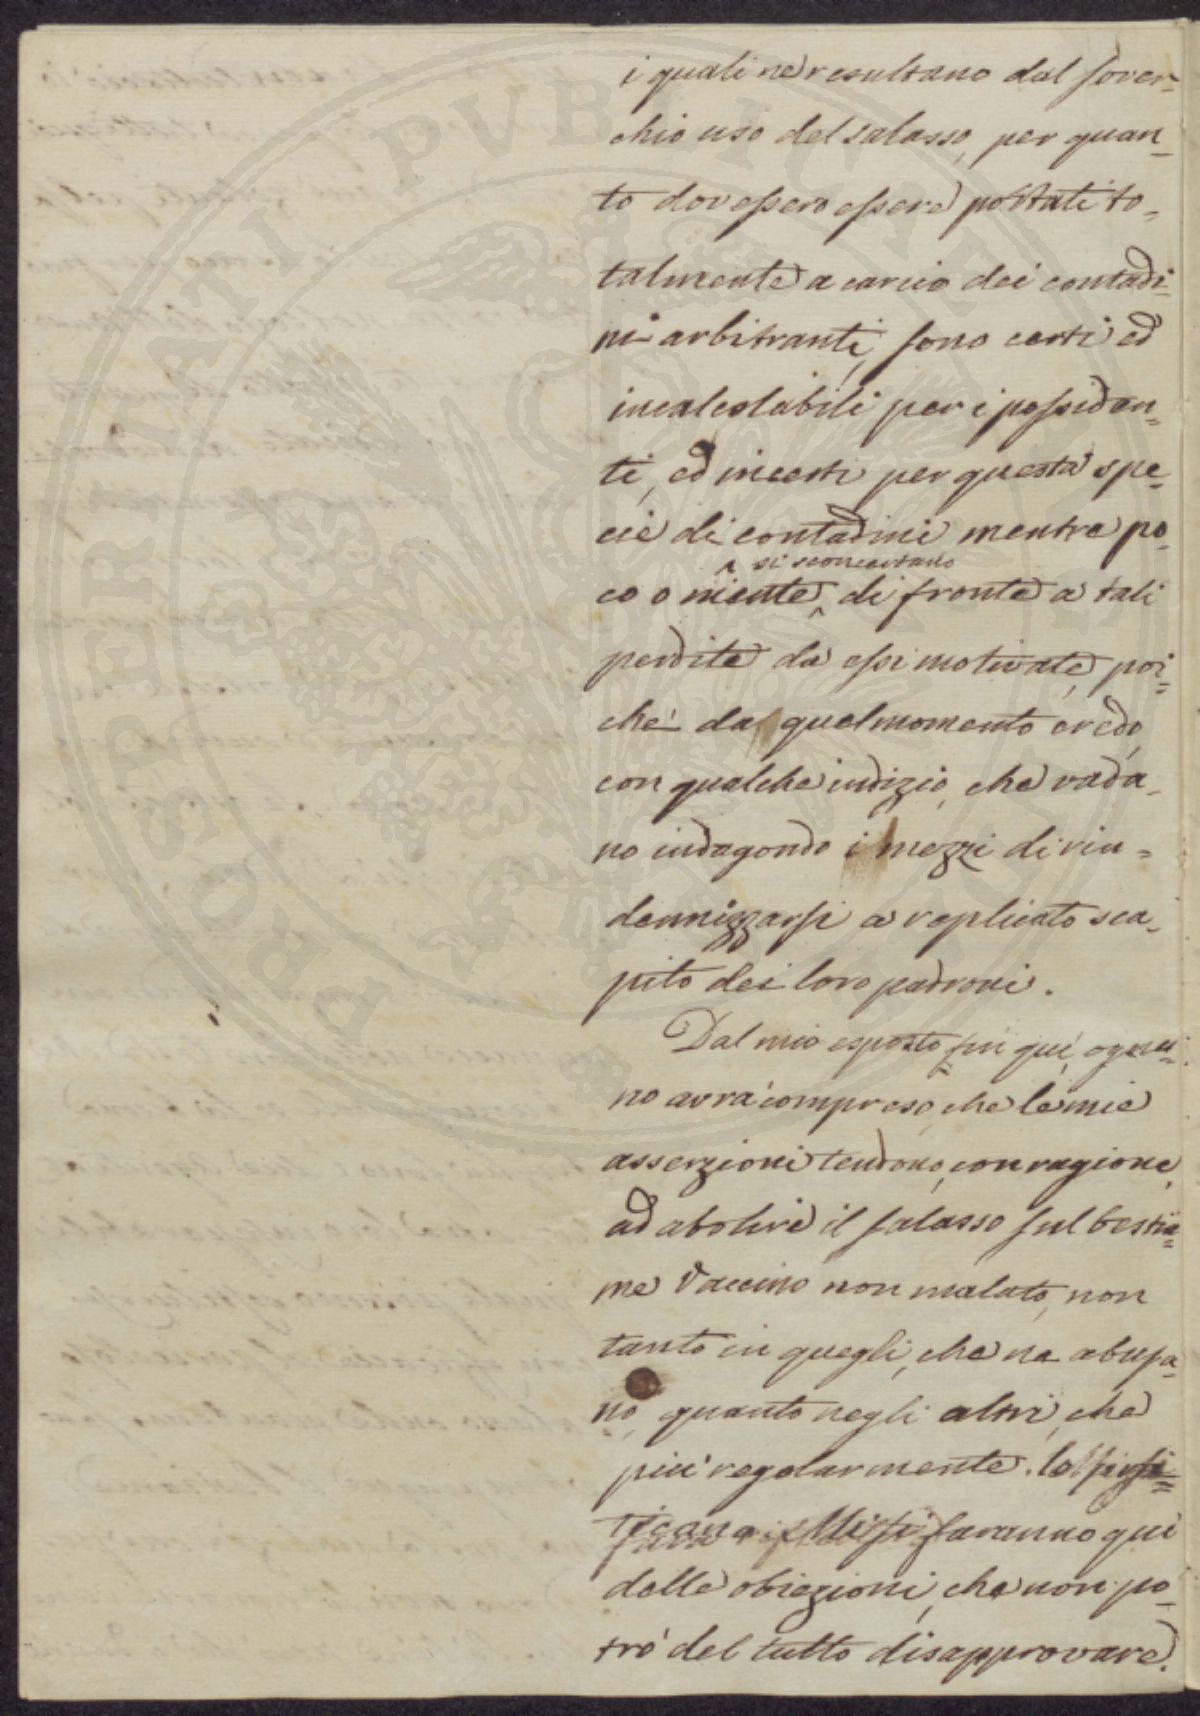 i quali ne resultano dal sover=
chio uso del salasso, per quan=
to dovessero essere portati to=
talmente a carico dei contadi=
ni arbitranti, sono certi ed
incalcolabili per i possiden=
ti, ed incerti per questa spe=
cie di contadini mentre po=
si sconcertano
co o niente, di fronte a tali
perdite da essi motivate, poi=
chè da quel momento credo,
con qualche indizio, che vada=
no indagondo i mezzi di rin=
dennizzarsi a replicato sca=
pito dei loro padroni.
Dal mio esposto fin quì, ognu=
no avrà compreso, che le mie
asserzioni tendono, con ragione,
ad abolire il salasso sul bestia=
me Vaccino non malato, non
tanto in quegli, che ne abusa=
no, quanto negli altri, che
più regolarmente
Mi si faranno quì
delle obiezioni, che non po=
trò del tutto disapprovare.
PROSPERITATI PVBLICAE